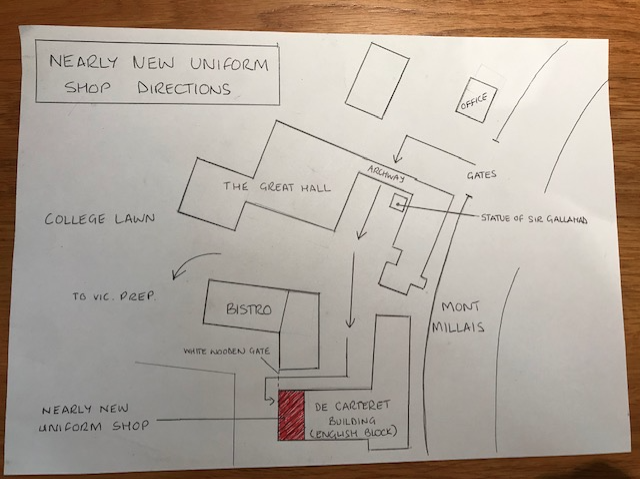 NEARLY NEW UNIFORM
SHOP DIRECTIONS
OFFICE
ARCHWAY
GATES
THE GREAT HALL
STATUE OF SIR GALLAHAD
COLLEGE LAWN
TO VIC. PREP.
BISTRO
MONT
MILLAIS
WHITE WOODEN GATE
NEARLY NEW
UNIFORM SHOP
DE CARTERET
BUILDING
(ENGLISH BLOCK)